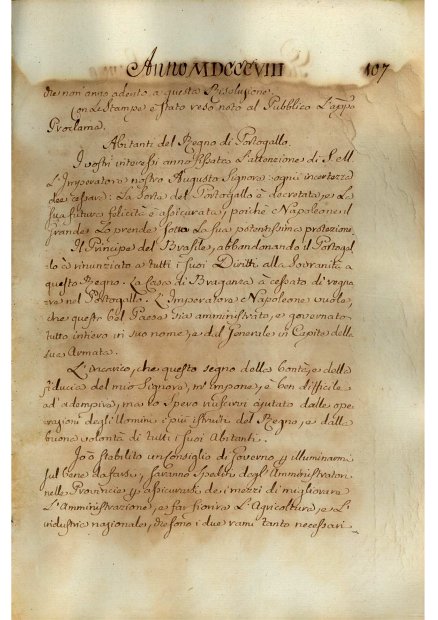 Anno MDCCCVIII 107
che non anno aderito a questa Risoluzione.
Con le Stampe è stato reso noto al Pubblico l'app.o
Proclama.
Abitanti del Regno di Portogallo.
I vostri interessi anno fissata l'attenzione di S. M.
L'Imperatore nostro Augusto Signore: ogni incertezza
dee cessare: La Sorte del Portogallo è decretata, e la
sua futura felicità è assicurata, poiché Napoleone il
grande lo prende sotto la sua potentissima protezione.
Il Principe del Brasile, abbandonando il Portogal-
lo à rinunziato a tutti i suoi Diritti alla Sovranità di
questo Regno. La Casa di Braganza à cessato di regna-
re nel Portogallo. L'Imperatore Napoleone vuole,
che questo bel Paese sia amministrato, e governato
tutto intiero in suo nome, e dal Generale in Capite della
sua Armata.
L'incarico, che questo segno della bontà, e della
fiducia del mio Signore, m'impone, è ben difficile
ad'adempire, ma io spero riuscirvi ajutato dalle ope-
razioni degli Uomini i più istruiti del Regno, e dalla
buona volontà di tutti i suoi Abitanti.
Io ò stabilito un Consiglio di Governo p illuminarmi
sul bene da farsi, saranno spediti degl'Amministratori
nelle Provincie p assicurarsi de i mezzi di migliorare
l'Amministrazione, e far fiorire l'Agricoltura, e l'in-
industria nazionale, che sono i due rami tanto necessari